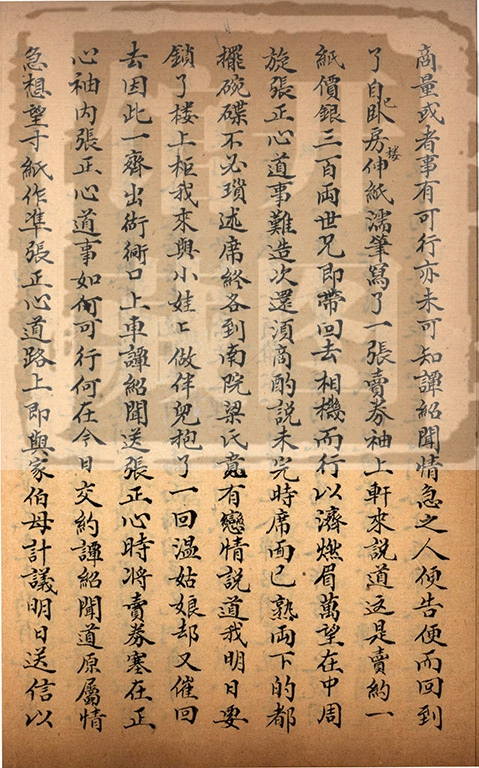 商量或者事有可行亦未可知譚紹聞情急之人便告便而回到
了自己卧房樓伸紙濡筆寫了一張賣券袖上軒來說道这是賣約一
紙價銀三百両世兄即帶回去相機而行以濟燃眉萬望在中周
旋張正心道事難造次還須商酌說未完時席面已熟両下的都
擺碗碟不必瑣述席終各到南院梁氏竟有戀情說道我明日要
鎖了楼上柜我來與小娃娃做伴兒抱了一回温姑娘却又催回
去因此一齊出衚衕口上車譚紹聞送張正心時将賣券塞在正
心袖内張正心道事如何可行何在今日交約譚紹聞道原属情
急想望寸紙作凖張正心道路上即與家伯母計議明日送信以